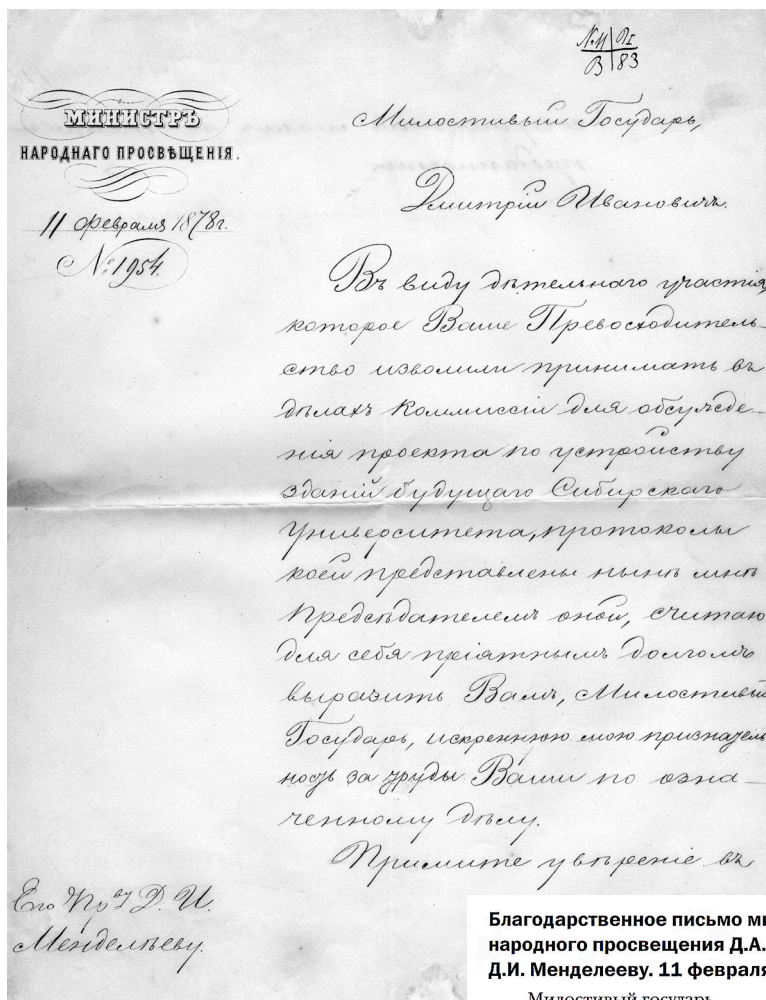 МИНИСТРЪ
НАРОДНАГО ПРОСВѢЩЕНІЯ.
11 февраля 1878 г.
№ 1954.
Милостивый Государь,
Дмитрій Ивановичъ.
Въ виду дѣтельнаго участія,
которое Ваше Превосходитель-
ство изволили принимать въ
дѣлахъ Коммиссіи для обсужде-
нія проекта по устройству
зданій будущаго Сибирскаго
Университета, протоколы
коей представлены нынѣ мнѣ
Предсѣдателемъ оной, считаю
для себя пріятнымъ долгомъ
выразить Вамъ, Милостивый
Государь, искреннюю мою признатель
ность за труды Ваши по озна-
ченному дѣлу.
Примите увѣреніе въ
Его Пр ву Д. И.
Менделѣеву.
Благодарственное письмо ми
народного просвещения Д.А.
Д.И. Менделееву. 11 февраля
Милостивый государь